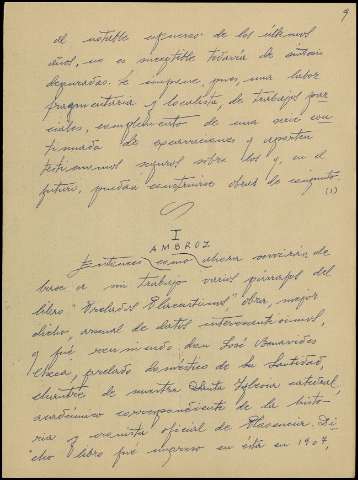 9
al notable esfuerzo de los últimos
años, no es suceptible todavía de síntesis
depuradas. Se impone, pues, una labor
fragmentaria y localista, de trabajos par
ciales, complemento de una serie con
tinuada de excavaciones y aporten
testimonios seguros sobre los q, en el
futuro, puedan construirse obras de conjunto.
(1)
I
AMBROZ
Entonces como ahora servirán de
base a mi trabajo varios párrafos del
libro "Prelados Placentinos" obra, mejor
dicho, arsenal de datos interesantísimos,
q fué reuniendo don José Benavides
Checa, prelado doméstico de Su Santidad,
chantre de nuestra Santa Iglesia catedral,
académico correspondiente de la histo-
ria y cronista oficial de Plasencia. Di-
cho libro fué impreso en ésta en 1907,